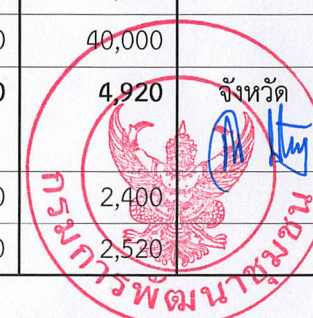 0 40,000
0 4,920 จังหวัด
0 2,400
0 2,520
กรมการพัฒนาชุมชน